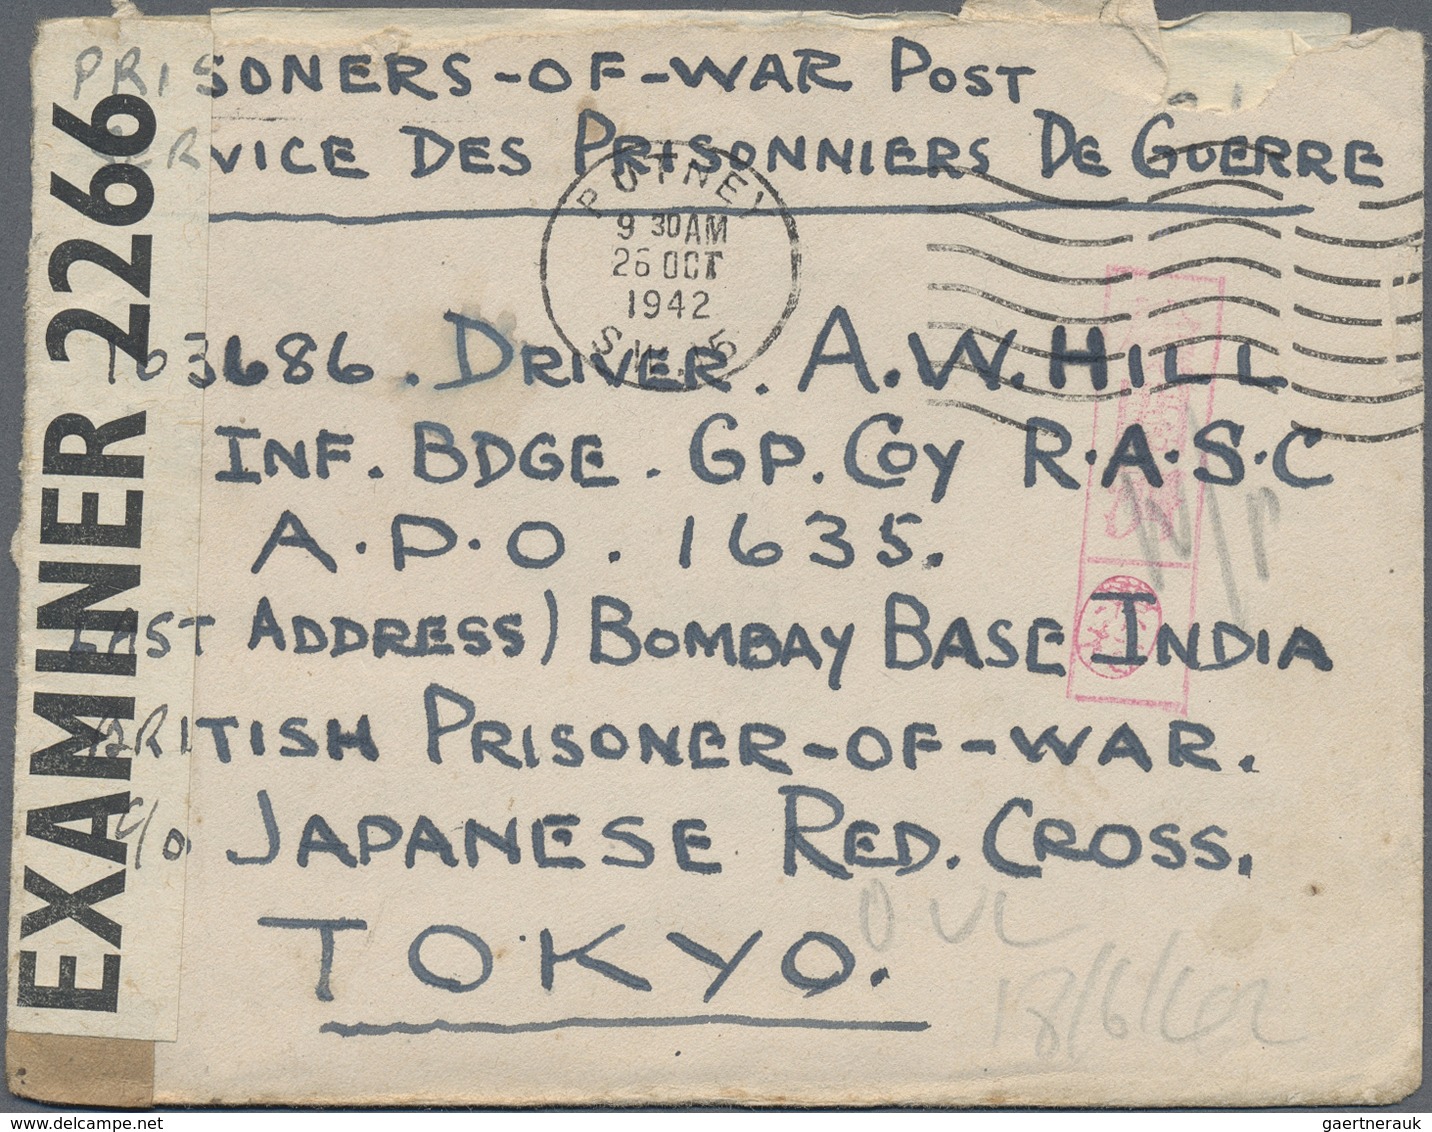 PRISONERS-OF-WAR POST
SERVICE DES PRISONNIERS DE GUERRE
PUTNEY
9 30AM
26 OCT
1942
S.W.15
EXAMINER 2266
DRIVER. A.W. HILL
INF. BDGE. GP. COY R.A.S.C
A.P.O. 1635.
LAST ADDRESS) BOMBAY BASE INDIA
BRITISH PRISONER-OF-WAR.
C/O JAPANESE RED. CROSS.
TOKYO.
gaertnerauk